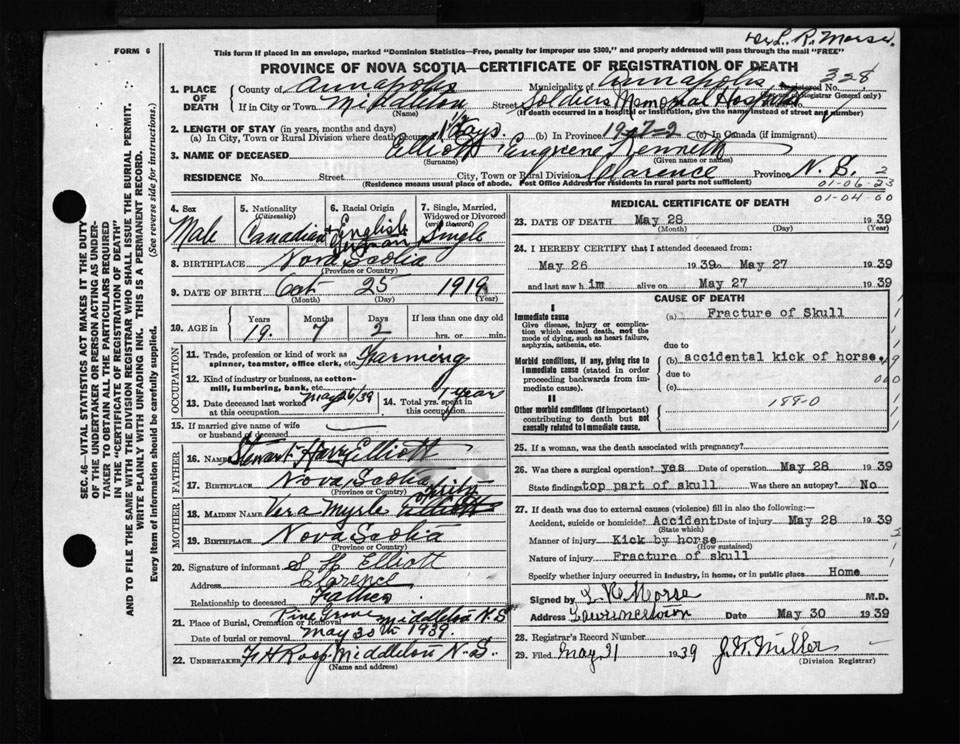 FORM 6
This form if placed in an envelope, marked "Dominion Statistics—Free, penalty for improper use $300," and properly addressed will pass through the mail "FREE"
L. R. Morse.
PROVINCE OF NOVA SCOTIA—CERTIFICATE OF REGISTRATION OF DEATH
SEC. 46—VITAL STATISTICS ACT MAKES IT THE DUTY
OF THE UNDERTAKER OR PERSON ACTING AS UNDER-
TAKER TO OBTAIN ALL THE PARTICULARS REQUIRED
IN THE "CERTIFICATE OF REGISTRATION OF DEATH"
AND TO FILE THE SAME WITH THE DIVISION REGISTRAR WHO SHALL ISSUE THE BURIAL PERMIT.
WRITE PLAINLY WITH UNFADING INK. THIS IS A PERMANENT RECORD.
Every item of Information should be carefully supplied. (See reverse side for instructions.)
1. PLACE OF DEATH
County of Annapolis Municipality of Annapolis Registered No. 328
(Registrar General only)
If in City or Town Middleton Street Soldiers Memorial Hospital
(Name) (If death occurred in a hospital or institution, give the name instead of street and number)
2. LENGTH OF STAY (in years, months and days)
(a) In City, Town or Rural Division where death occurred 1½ days. (b) In Province 19-7-2 (c) In Canada (if immigrant)
3. NAME OF DECEASED Elliott Eugene Kenneth
(Surname) (Given name or names)
RESIDENCE No. Street City, Town or Rural Division Clarence Province N. S. 2
(Residence means usual place of abode. Post Office Address for residents in rural parts not sufficient)
01-06-23
01-04-00
4. Sex Male
5. Nationality (Citizenship) Canadian
6. Racial Origin English + German
7. Single, Married, Widowed or Divorced (write the word) Single
8. BIRTHPLACE Nova Scotia
(Province or Country)
9. DATE OF BIRTH Oct 25 1919
(Month) (Day) (Year)
10. AGE in Years Months Days If less than one day old
19. 7 2 hrs. or min.
OCCUPATION
11. Trade, profession or kind of work as spinner, teamster, office clerk, etc. Farming
12. Kind of industry or business, as cotton-mill, lumbering, bank, etc.
13. Date deceased last worked at this occupation May 26/39
14. Total yrs. spent in this occupation 1 year
15. If married give name of wife or husband of deceased —
FATHER
16. Name Stewart Harry Elliott
17. Birthplace Nova Scotia
(Province or Country)
MOTHER
18. Maiden Name Vera Myrle
19. Birthplace Nova Scotia
(Province or Country)
20. Signature of informant S H Elliott
Address Clarence
Relationship to deceased Father
21. Place of Burial, Cremation or Removal Pine Grove Middleton N.S
Date of burial or removal May 30th 1939.
22. UNDERTAKER F H Roop Middleton N. S.
(Name and address)
MEDICAL CERTIFICATE OF DEATH
23. DATE OF DEATH May 28 1939
(Month) (Day) (Year)
24. I HEREBY CERTIFY that I attended deceased from:
May 26 1939 to May 27 1939
and last saw him alive on May 27 1939
CAUSE OF DEATH
I
Immediate cause (a) Fracture of Skull
Give disease, injury or complication which caused death, not the mode of dying, such as heart failure, asphyxia, asthenia, etc.
due to
Morbid conditions, if any, giving rise to Immediate cause (stated in order proceeding backwards from immediate cause).
(b) accidental kick of horse.
due to
(c)
II
Other morbid conditions (if important) contributing to death but not causally related to immediate cause.
188-0
25. If a woman, was the death associated with pregnancy?
26. Was there a surgical operation? yes Date of operation May 28 1939
State findings top part of skull Was there an autopsy? No
27. If death was due to external causes (violence) fill in also the following:—
Accident, suicide or homicide? Accident Date of injury May 28 1939
(State which)
Manner of injury Kick by horse
(How sustained)
Nature of injury Fracture of skull
Specify whether injury occurred in industry, in home, or in public place Home
Signed by L R Morse M.D.
Address Lawrencetown Date May 30 1939
28. Registrar's Record Number
29. Filed May 31 1939 J. W. Miller
(Division Registrar)